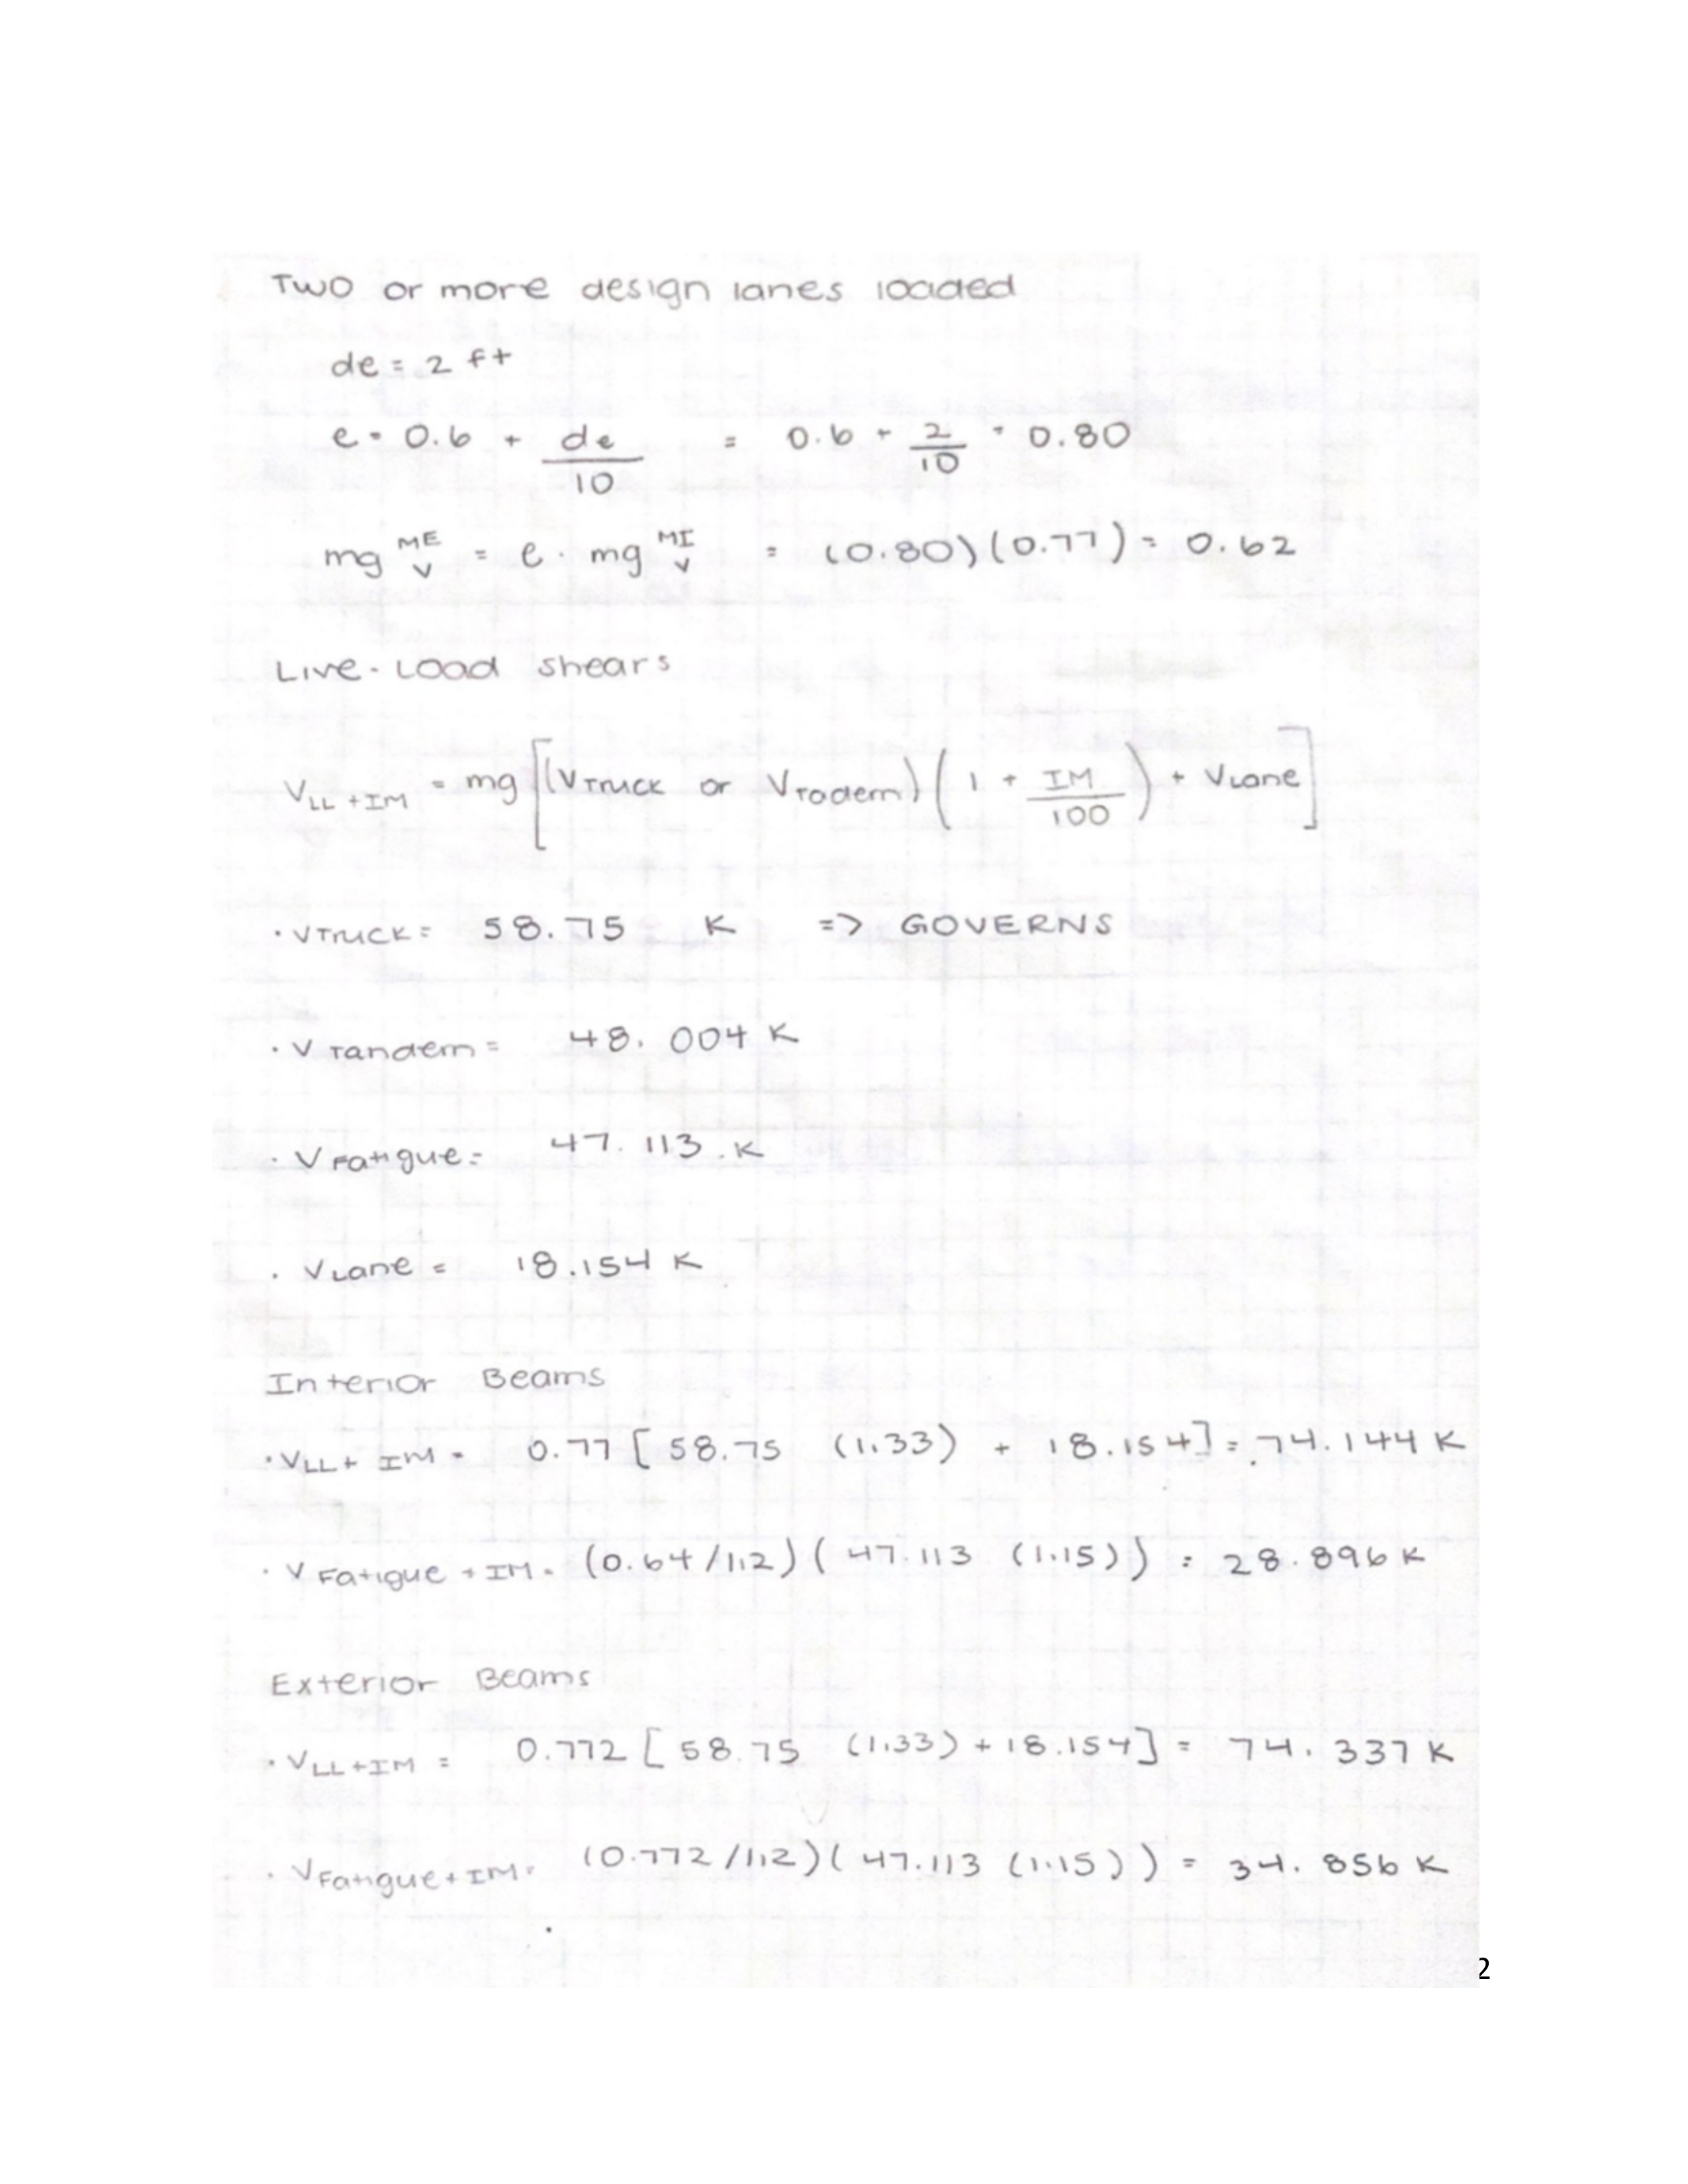 Two or more design lanes loaded
de = 2 ft
e = 0.6 + de/10 = 0.6 + 2/10 = 0.80
mg ME V = e mg MI V = (0.80)(0.77) = 0.62
Live-Load shears
VLL+IM = mg [(VTruck or VTadem) (1 + IM/100) + VLane]
· VTruck = 58.75 K => GOVERNS
· VTandem = 48.004 K
· VFatigue = 47.113 K
· VLane = 18.154 K
Interior Beams
· VLL+IM = 0.77 [58.75 (1.33) + 18.154] = 74.144 K
· VFatigue+IM = (0.64/1.2)(47.113 (1.15)) = 28.896 K
Exterior Beams
· VLL+IM = 0.772 [58.75 (1.33) + 18.154] = 74.337 K
· VFatigue+IM = (0.772/1.2)(47.113 (1.15)) = 34.856 K
2